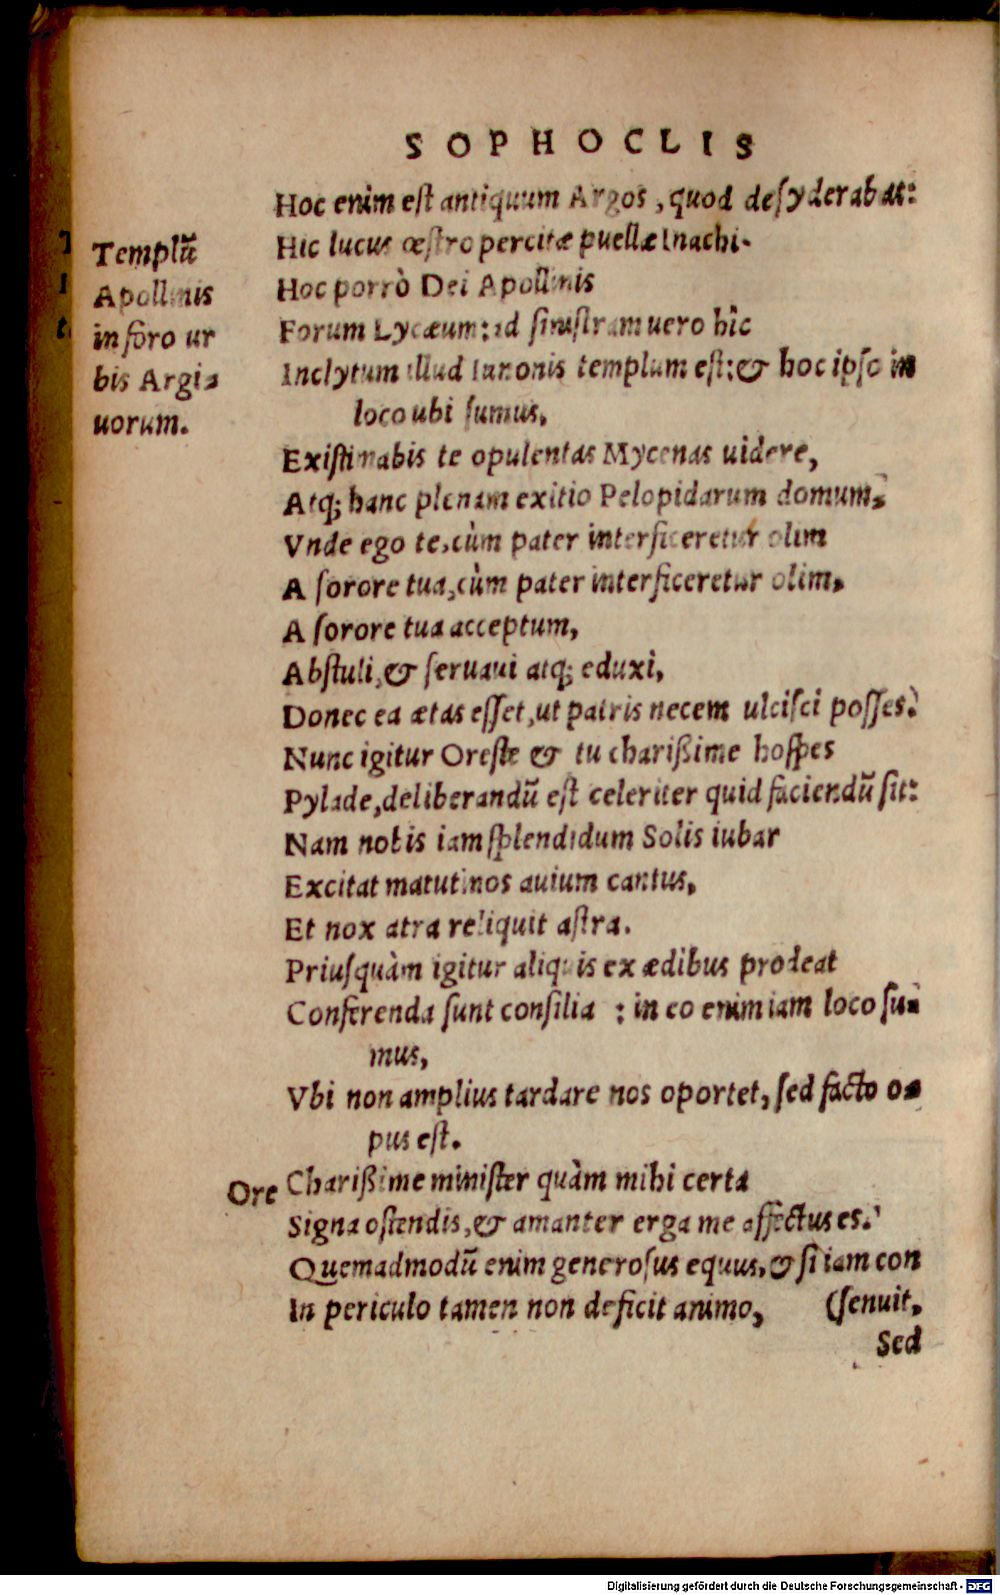 SOPHOCLIS
Hoc enim eſt antiquum Argos, quod deſyderabat:
Hic lucus œſtro percitæ puellæ Inachi.
Hoc porrò Dei Apollinis
Forum Lycæum: ad ſiniſtram uero hîc
Inclytum illud Iunonis templum eſt: & hoc ipſo in
loco ubi ſumus,
Templū
Apollinis
in foro ur
bis Argi-
uorum.
Exiſtimabis te opulentas Mycenas uidere,
Atq; hanc plenam exitio Pelopidarum domum,
Vnde ego te, cùm pater interficeretur olim
A ſorore tua, cùm pater interficeretur olim,
A ſorore tua acceptum,
Abſtuli, & ſeruaui atq; eduxi,
Donec ea ætas eſſet, ut patris necem ulciſci poſſes.
Nunc igitur Oreſte & tu charißime hoſpes
Pylade, deliberandū eſt celeriter quid faciendū ſit:
Nam nobis iam ſplendidum Solis iubar
Excitat matutinos auium cantus,
Et nox atra reliquit aſtra.
Priuſquàm igitur aliquis ex ædibus prodeat
Conferenda ſunt conſilia : in eo enim iam loco ſu-
mus,
Vbi non amplius tardare nos oportet, ſed facto o-
pus eſt.
Ore Charißime miniſter quàm mihi certa
Signa oſtendis, & amanter erga me affectus es.
Quemadmodū enim generoſus equus, & ſi iam con
In periculo tamen non deficit animo, (ſenuit,
Sed
Digitalisierung gefördert durch die Deutsche Forschungsgemeinschaft - DFG